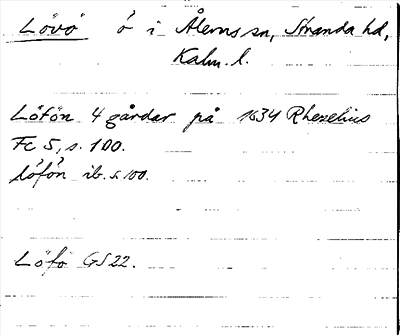 Lövö ö i Ålems sn, Stranda hd,
Kalm. l.
Löfön 4 gårdar på 1634 Rhezelius
Fc 5, s. 100.
Löfön ib. s. 100.
Löfö GS22.